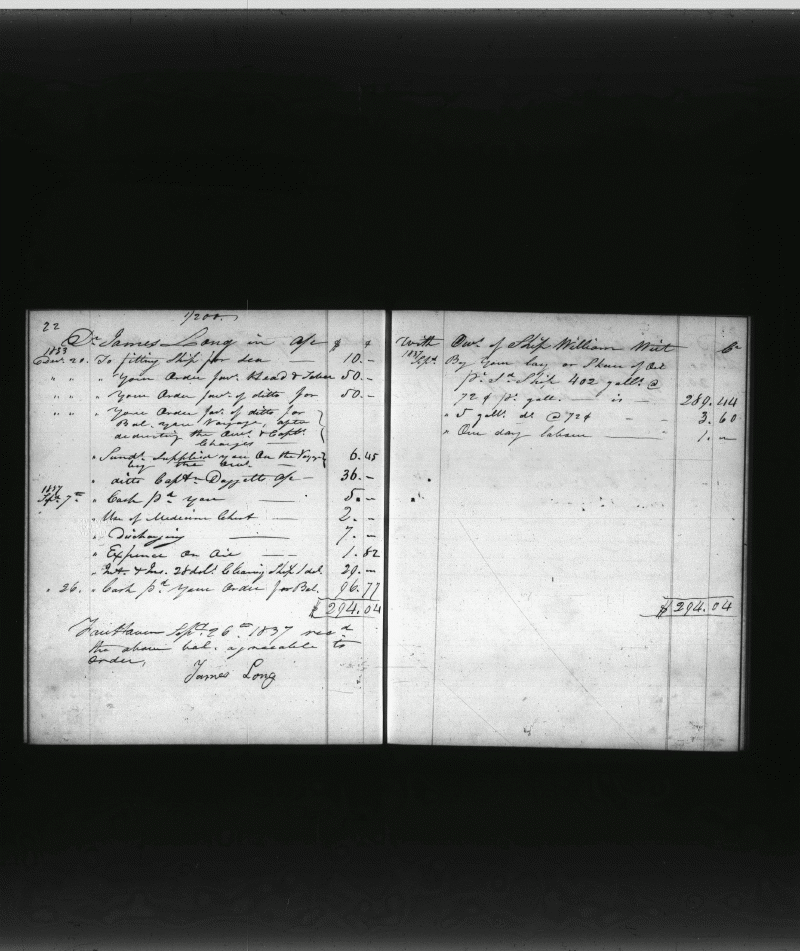 22
1/200
Dr James Long in a/c $ ¢
1833
20. To fitting Ship for sea — 10.—
" " " Your Order fav. Head & 50.—
" " " Your Order fav. of ditto for 50.—
" " " Your Order fav. of ditto for
Bal. your Voyage, after
deducting the Own. & Capt.
Charges —
" Sunds. Supplied you on the Voyge
by the Own. — 6.45
" ditto Capt. Daggett a/c — 36.—
1837
Sept. 7th " Cash pd you — 5.—
" Use of Medicine Chest — 2.—
" Discharging — 7.—
" Expence on Oil — 1.82
" Int. & Ins. 28 dols. Cleaning Ship 1 dol. 29.—
" 26. " Cash pd Your Order for Bal. 96.77
$ 294.04
Fairhaven Septr. 26th 1837 recd
the above bal. agreeable to
order,
James Long
With Own. of Ship William Cr
1837
Sept. By Your Lay or Share of Oil
pr. Sd. Ship 402 galls. @
72 ¢ pr. gall. — is 289.44
" 5 galls. do. @ 72 ¢ — 3.60
" One day labour — 1.—
$ 294.04